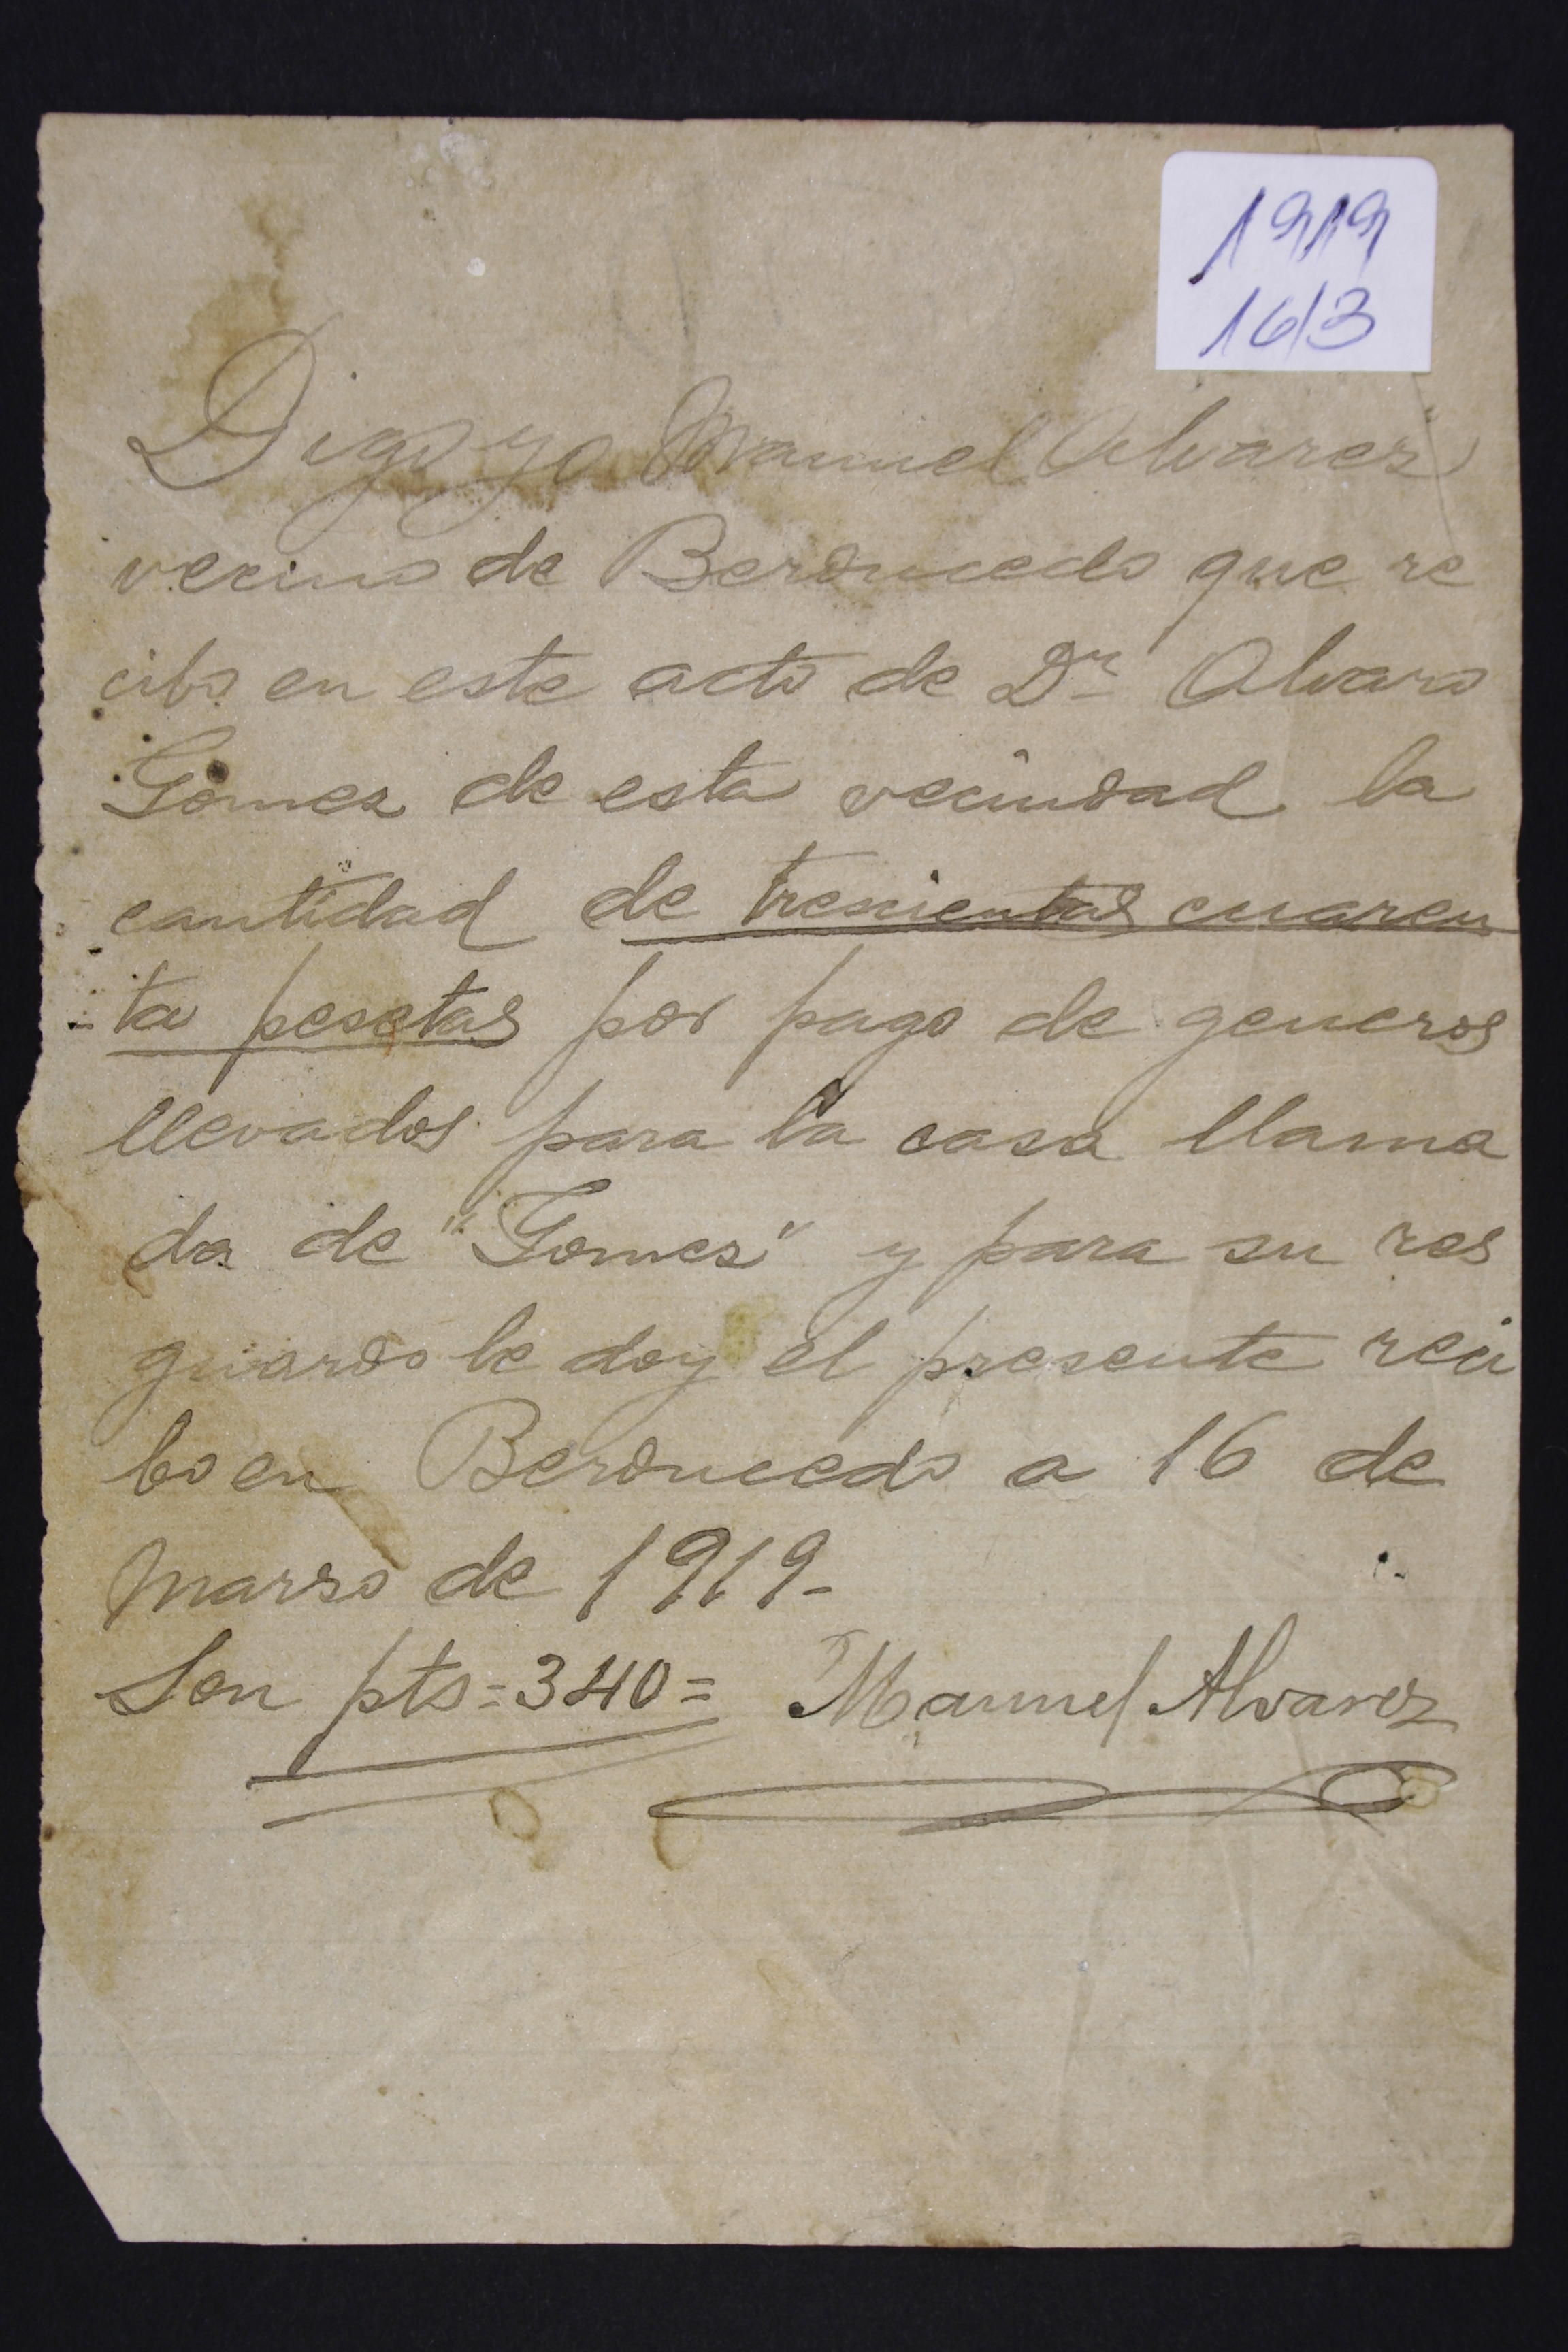 1919
16/3
Digo yo Manuel Alvarez
vecino de Berducedo que re
cibo en este acto de Dn Alvaro
Gomez de esta vecindad la
cantidad de trescientas cuaren
ta pesetas por pago de generos
llevados para la casa llama
da de "Gomes" y para su res
guardo le doy el presente reci
bo en Berducedo a 16 de
marzo de 1919-
Son pts = 340 = Manuel Alvarez